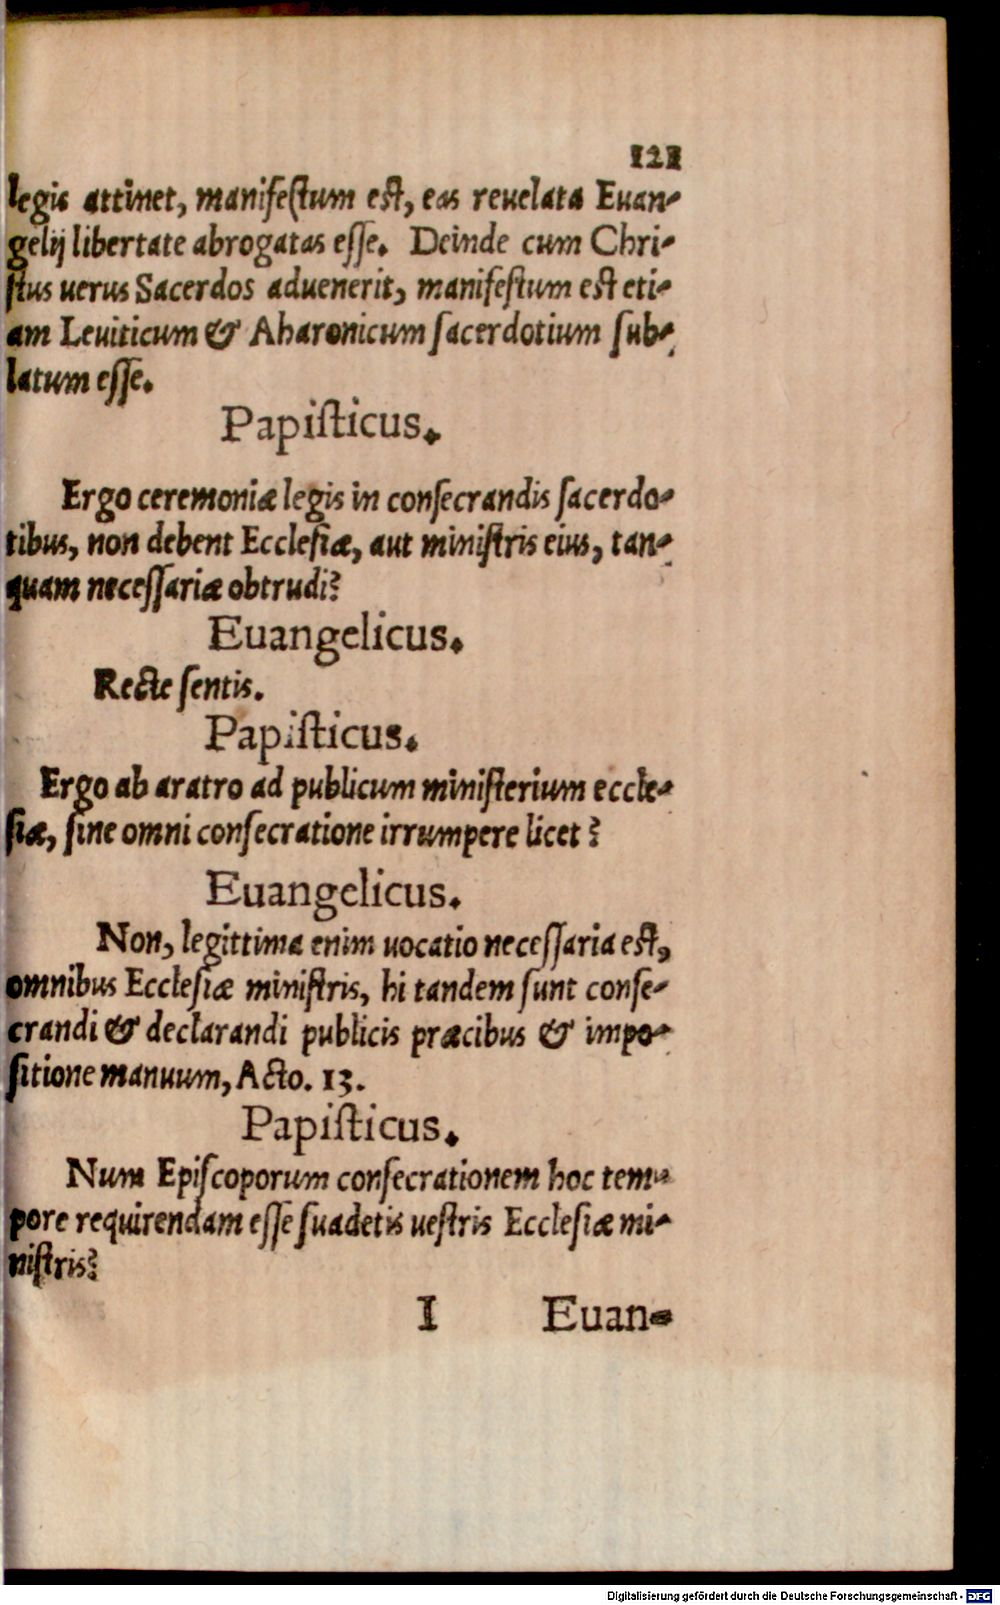 121
legis attinet, manifestum est, eas reuelata Euan-
gelij libertate abrogatas esse. Deinde cum Chri-
stus uerus Sacerdos aduenerit, manifestum est eti-
am Leuiticum & Aharonicum sacerdotium sub-
latum esse.
Papisticus.
Ergo ceremoniæ legis in consecrandis sacerdo-
tibus, non debent Ecclesiæ, aut ministris eius, tan-
quam necessariæ obtrudi?
Euangelicus.
Recte sentis.
Papisticus.
Ergo ab aratro ad publicum ministerium eccle-
siæ, sine omni consecratione irrumpere licet?
Euangelicus.
Non, legittima enim uocatio necessaria est,
omnibus Ecclesiæ ministris, hi tandem sunt conse-
crandi & declarandi publicis præcibus & impo-
sitione manuum, Acto. 13.
Papisticus.
Num Episcoporum consecrationem hoc tem-
pore requirendam esse suadetis uestris Ecclesiæ mi-
nistris?
I Euan-
Digitalisierung gefördert durch die Deutsche Forschungsgemeinschaft - DFG